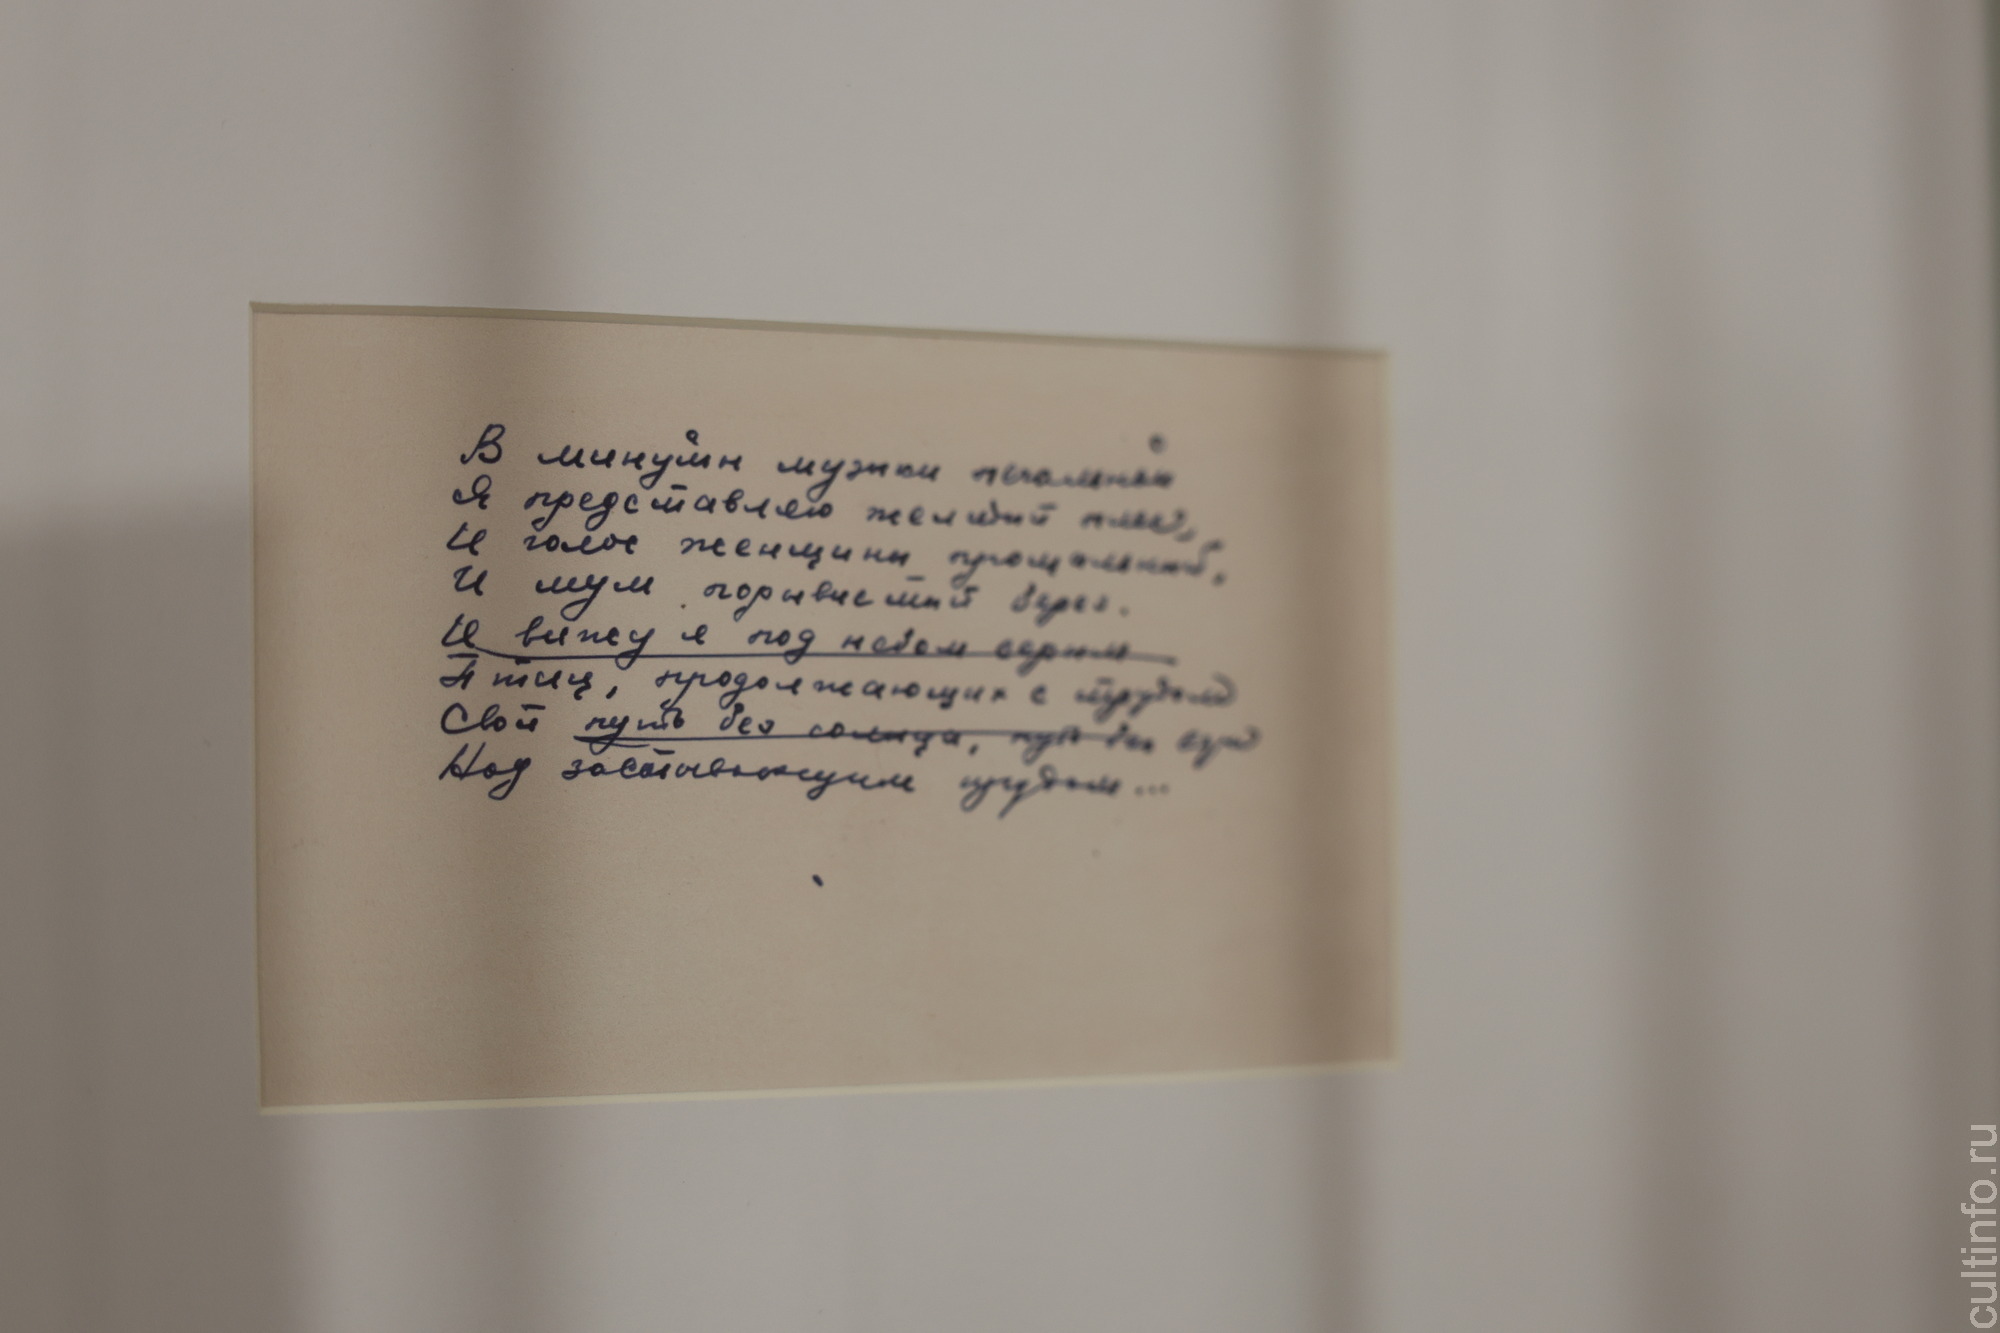 В минуты музыки печальной
Я представляю желтый плес,
И голос женщины прощальный,
И шум порывистый берез.
И вижу я под небом серым
Птиц, продолжающих с трудом
Свой путь без солнца, путь без
Над застывающим прудом...
cultinfo.ru